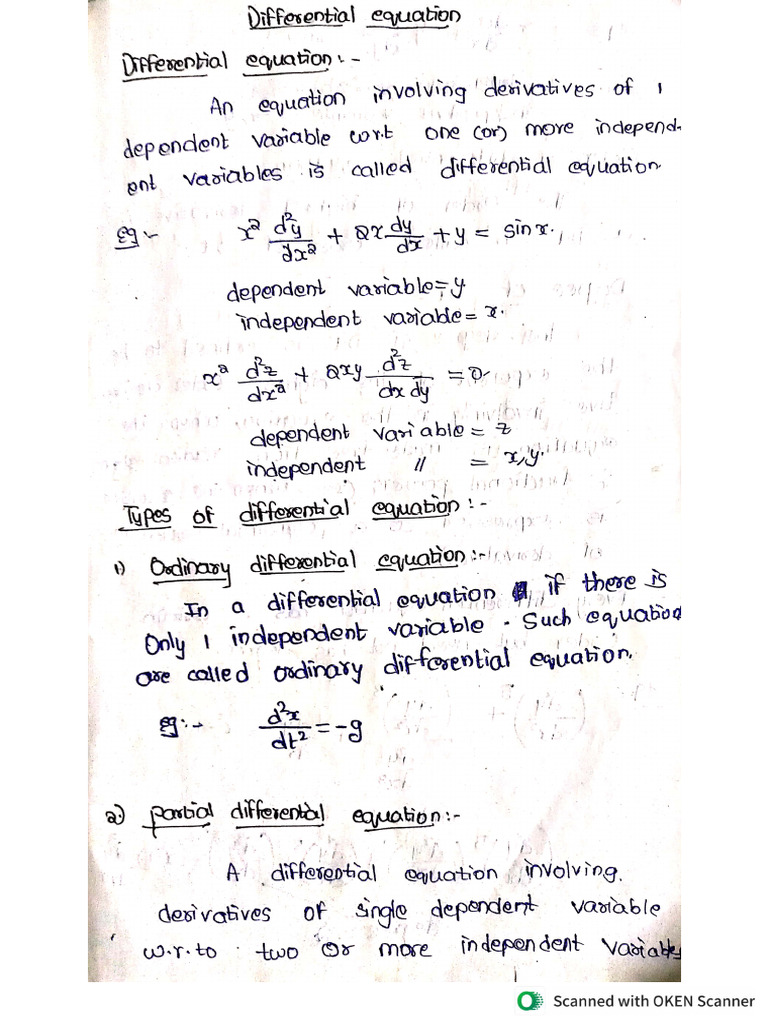 Differential equation
Differential equation:-
An equation involving derivatives of 1
dependent variable w.r.t one (or) more independ-
ent variables is called differential equation.
Eg:- x² d²y/dx² + 2x dy/dx + y = sin x.
dependent variable = y
independent variable = x.
x² d²z/dx² + 2xy d²z/dx dy = 0.
dependent variable = z
independent 〃 = x, y.
Types of differential equation:-
1) Ordinary differential equation:-
In a differential equation if there is
Only 1 independent variable. Such equation
are called ordinary differential equation.
eg:- d²x/dt² = -g
2) partial differential equation:-
A differential equation involving.
derivatives of single dependent variable
w.r.to two or more independent variables
Scanned with OKEN Scanner